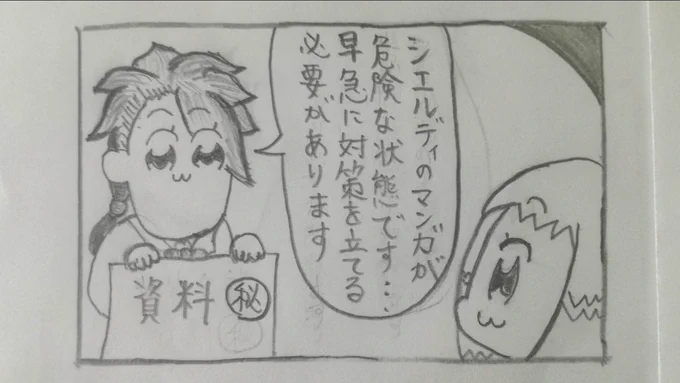 シエルディのマンガが
危険な状態です…、
早急に対策を立てる
必要があります
資料 ㊙